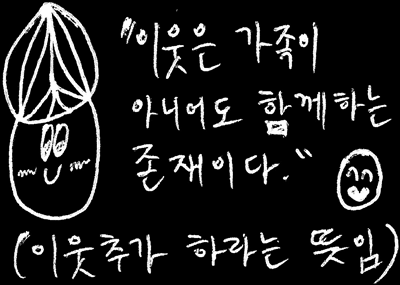 "이웃은 가족이
아니어도 함께하는
존재이다."
(이웃추가 하라는 뜻임)